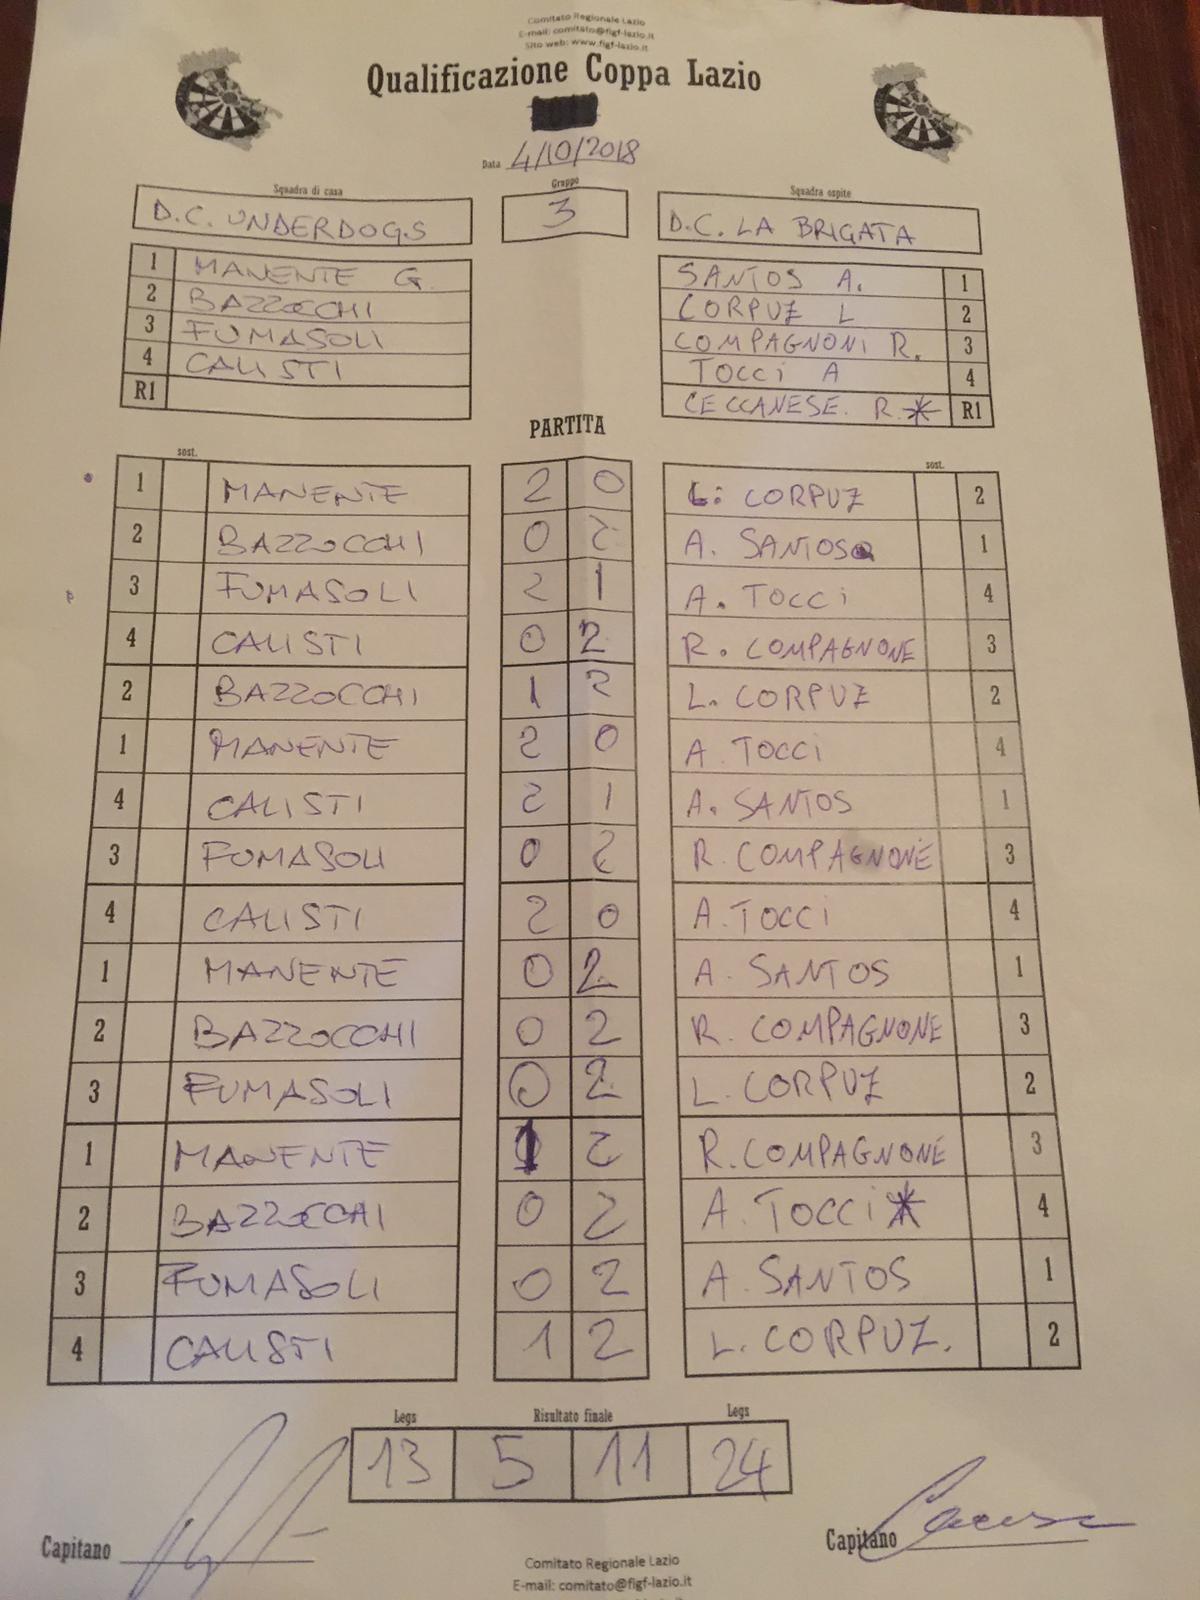 Comitato Regionale Lazio
E-mail: comitato@figf-lazio.it
Sito web: www.figf-lazio.it
Qualificazione Coppa Lazio
Data 4/10/2018
Squadra di casa Gruppo Squadra ospite
D.C. UNDERDOGS 3 D.C. LA BRIGATA
1 MANENTE G. SANTOS A. 1
2 BAZZOCCHI CORPUZ L 2
3 FUMASOLI COMPAGNONI R. 3
4 CALISTI TOCCI A 4
R1 CECCANESE. R.* R1
PARTITA
sost. sost.
1 MANENTE 2 0 L. CORPUZ 2
2 BAZZOCCHI 0 2 A. SANTOS 1
3 FUMASOLI 2 1 A. TOCCI 4
4 CALISTI 0 2 R. COMPAGNONE 3
2 BAZZOCCHI 1 2 L. CORPUZ 2
1 MANENTE 2 0 A TOCCI 4
4 CALISTI 2 1 A. SANTOS 1
3 FUMASOLI 0 2 R. COMPAGNONE 3
4 CALISTI 2 0 A. TOCCI 4
1 MANENTE 0 2 A. SANTOS 1
2 BAZZOCCHI 0 2 R. COMPAGNONE 3
3 FUMASOLI 0 2 L. CORPUZ 2
1 MANENTE 1 2 R. COMPAGNONE 3
2 BAZZOCCHI 0 2 A. TOCCI* 4
3 FUMASOLI 0 2 A. SANTOS 1
4 CALISTI 1 2 L. CORPUZ. 2
Legs Risultato finale Legs
13 5 11 24
Capitano Capitano
Comitato Regionale Lazio
E-mail: comitato@figf-lazio.it